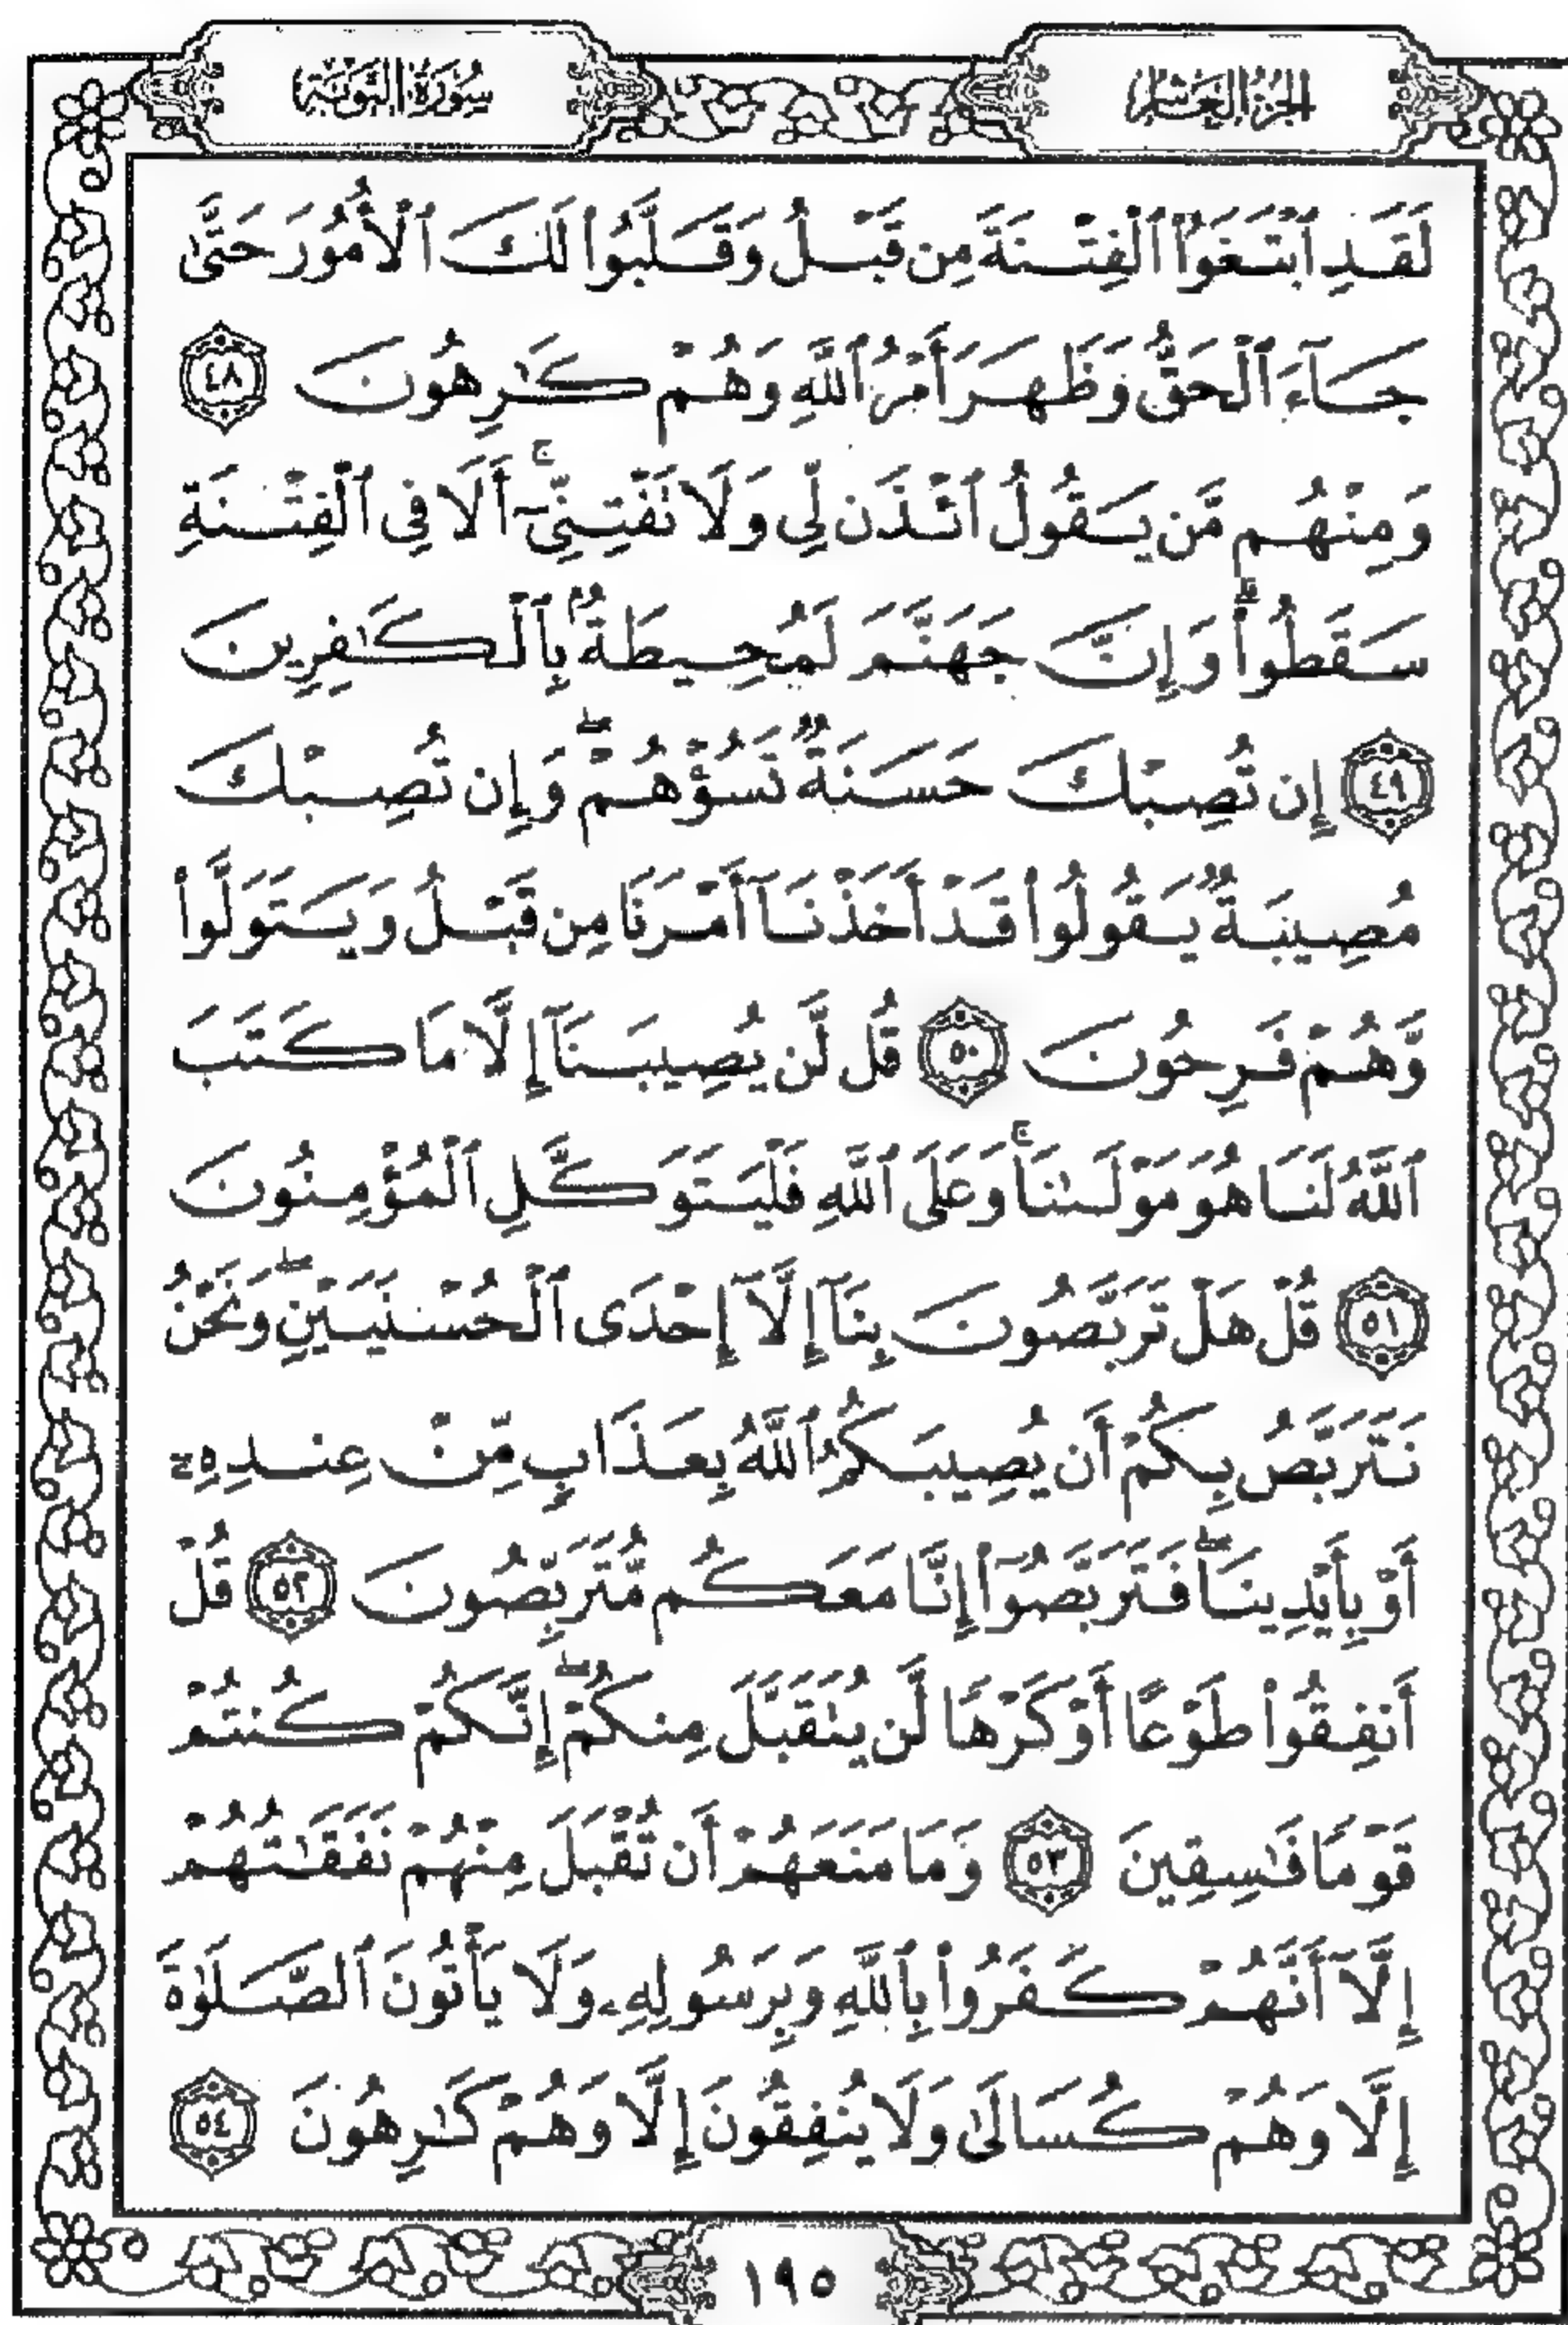 الجزء العاشر
سورة التوبة
لَقَدِ ٱبْتَغَوُا۟ ٱلْفِتْنَةَ مِن قَبْلُ وَقَلَّبُوا۟ لَكَ ٱلْأُمُورَ حَتَّىٰ
جَآءَ ٱلْحَقُّ وَظَهَرَ أَمْرُ ٱللَّهِ وَهُمْ كَٰرِهُونَ ٤٨
وَمِنْهُم مَّن يَقُولُ ٱئْذَن لِّى وَلَا تَفْتِنِّىٓ ۚ أَلَا فِى ٱلْفِتْنَةِ
سَقَطُوا۟ ۗ وَإِنَّ جَهَنَّمَ لَمُحِيطَةٌۢ بِٱلْكَٰفِرِينَ
٤٩ إِن تُصِبْكَ حَسَنَةٌ تَسُؤْهُمْ ۖ وَإِن تُصِبْكَ
مُصِيبَةٌ يَقُولُوا۟ قَدْ أَخَذْنَآ أَمْرَنَا مِن قَبْلُ وَيَتَوَلَّوا۟
وَّهُمْ فَرِحُونَ ٥٠ قُل لَّن يُصِيبَنَآ إِلَّا مَا كَتَبَ
ٱللَّهُ لَنَا هُوَ مَوْلَىٰنَا ۚ وَعَلَى ٱللَّهِ فَلْيَتَوَكَّلِ ٱلْمُؤْمِنُونَ
٥١ قُلْ هَلْ تَرَبَّصُونَ بِنَآ إِلَّآ إِحْدَى ٱلْحُسْنَيَيْنِ ۖ وَنَحْنُ
نَتَرَبَّصُ بِكُمْ أَن يُصِيبَكُمُ ٱللَّهُ بِعَذَابٍ مِّنْ عِندِهِۦٓ
أَوْ بِأَيْدِينَا ۖ فَتَرَبَّصُوٓا۟ إِنَّا مَعَكُم مُّتَرَبِّصُونَ ٥٢ قُلْ
أَنفِقُوا۟ طَوْعًا أَوْ كَرْهًا لَّن يُتَقَبَّلَ مِنكُمْ ۖ إِنَّكُمْ كُنتُمْ
قَوْمًا فَٰسِقِينَ ٥٣ وَمَا مَنَعَهُمْ أَن تُقْبَلَ مِنْهُمْ نَفَقَٰتُهُمْ
إِلَّآ أَنَّهُمْ كَفَرُوا۟ بِٱللَّهِ وَبِرَسُولِهِۦ وَلَا يَأْتُونَ ٱلصَّلَوٰةَ
إِلَّا وَهُمْ كُسَالَىٰ وَلَا يُنفِقُونَ إِلَّا وَهُمْ كَٰرِهُونَ ٥٤
١٩٥